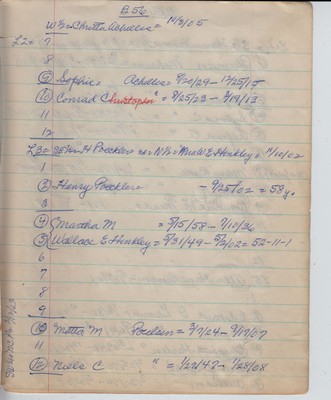 B 56
W½ = Christia Achelles = 11/3/05
L2 = 7
8
9 Sophie Achelles = 9/20/29 - 12/25/15
10 Conrad Christopher " = 8/25/23 - 3/19/13
11
12
L3 = H Poeckler N½ = E Hinkley = 11/10/02
1
2 Henry Poeckler = - 9/25/02 = 58 y.
3
4 Martha M = 5/15/58 - 7/10/36
5 Wallace E Hinkley = 5/31/49 - 5/2/02 = 52-11-1
6
7
8
9
10 Metta M Poulsen = 3/7/24 - 9/17/07
11
12 Niels C " = 1/22/43 - 1/28/08